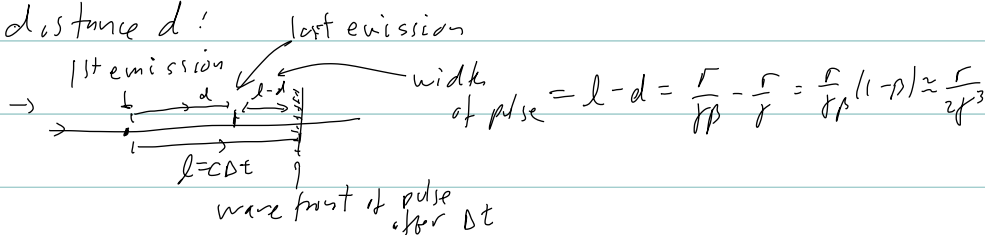 distance d:
last emission
1st emission
d
l-d
width of pulse = l-d = r/γβ - r/γ = r/γβ (1-β) ≈ r/2γ³
l=cΔt
wave front of pulse
after Δt